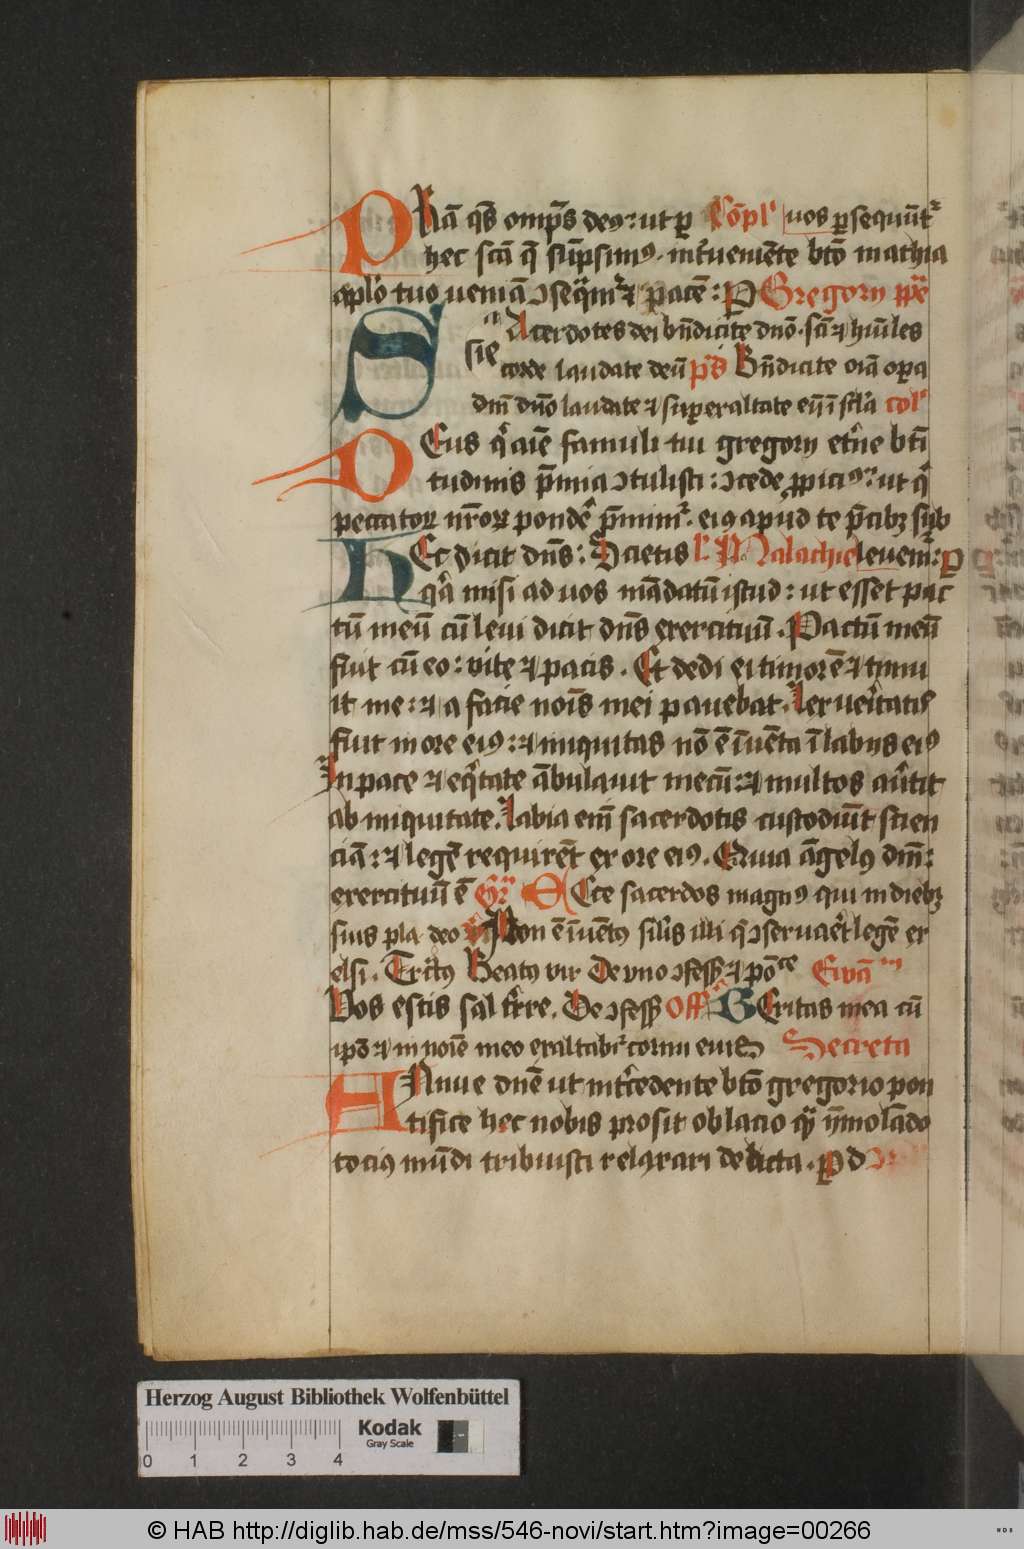 PRẜa q̄s omp̄s deꝰ: ut ꝑ Cōpl' uos ꝑsequūt᷑
hec sc̄a q̄ sūpsimꝰ. int᷑ueniēte bt̄o mathia
apl'o tuo ueniā ɔseq̄m᷑ ⁊ pacē: P Gregory ppe
SAcerdotes dei bn̄dicite dn̄o. sc̄i ⁊ hūiles
corde laudate deū p̄s Bn̄dicite oīa oꝑa
dn̄i dn̄o laudate ⁊ suꝑexaltate eū ī sc̄l'a col'
DEus q̄ aīe famuli tui gregory et'ne bt̄i
tudinis p̄mia ɔtulisti: ɔcede ꝓpiciꝰ: ut q̄
peccatoꝝ nr̄oꝝ pondē p̄mim᷑. eiꝰ apud te p̄cibꝫ sub
HEc dicit dn̄s: Scietis l' Malachie leuem᷑: P
q̄a misi ad uos mādatū istud: ut esset pac
tū meū cū leui dicit dn̄s exercituū. Pactū meū
fuit cū eo: vite ⁊ pacis. Et dedi ei timorē ⁊ timu
it me: ⁊ a facie nōis mei pauebat. Lex ue'itatis
fuit in ore eiꝰ: ⁊ iniquitas nō ē īuēta ī labijs eiꝰ
In pace ⁊ eq̄tate ābulauit mecū: ⁊ multos au'tit
ab iniquitate. Labia em̄ sacerdotis custodiūt scien
ciā: ⁊ legē requirēt ex ore eiꝰ. Quia āgelꝰ dn̄i:
exercituū ē Gr᷑ ECce sacerdos magnꝰ qui in diebꝫ
suis pla. deo Non ē īuētꝰ sil'is illi q̄ ɔseruaēt legē ex
elsi. Tr̄ctꝰ Beatꝰ vir De vno ɔfess ⁊ pō'ce Ewā'm
Vos estis sal t're. De ɔfess Off'm VEritas mea cū
ip̄o ⁊ in noīe meo exaltabit᷑ cornu eius Secreta
ANnue dn̄e ut int'cedente bt̄o gregorio pon
tifice hec nobis prosit oblacio q̄ȝ ȳmolādo
tociꝰ mūdi tribuisti relaxari delicta. P d
Herzog August Bibliothek Wolfenbüttel
Kodak
Gray Scale
0 1 2 3 4
© HAB http://diglib.hab.de/mss/546-novi/start.htm?image=00266